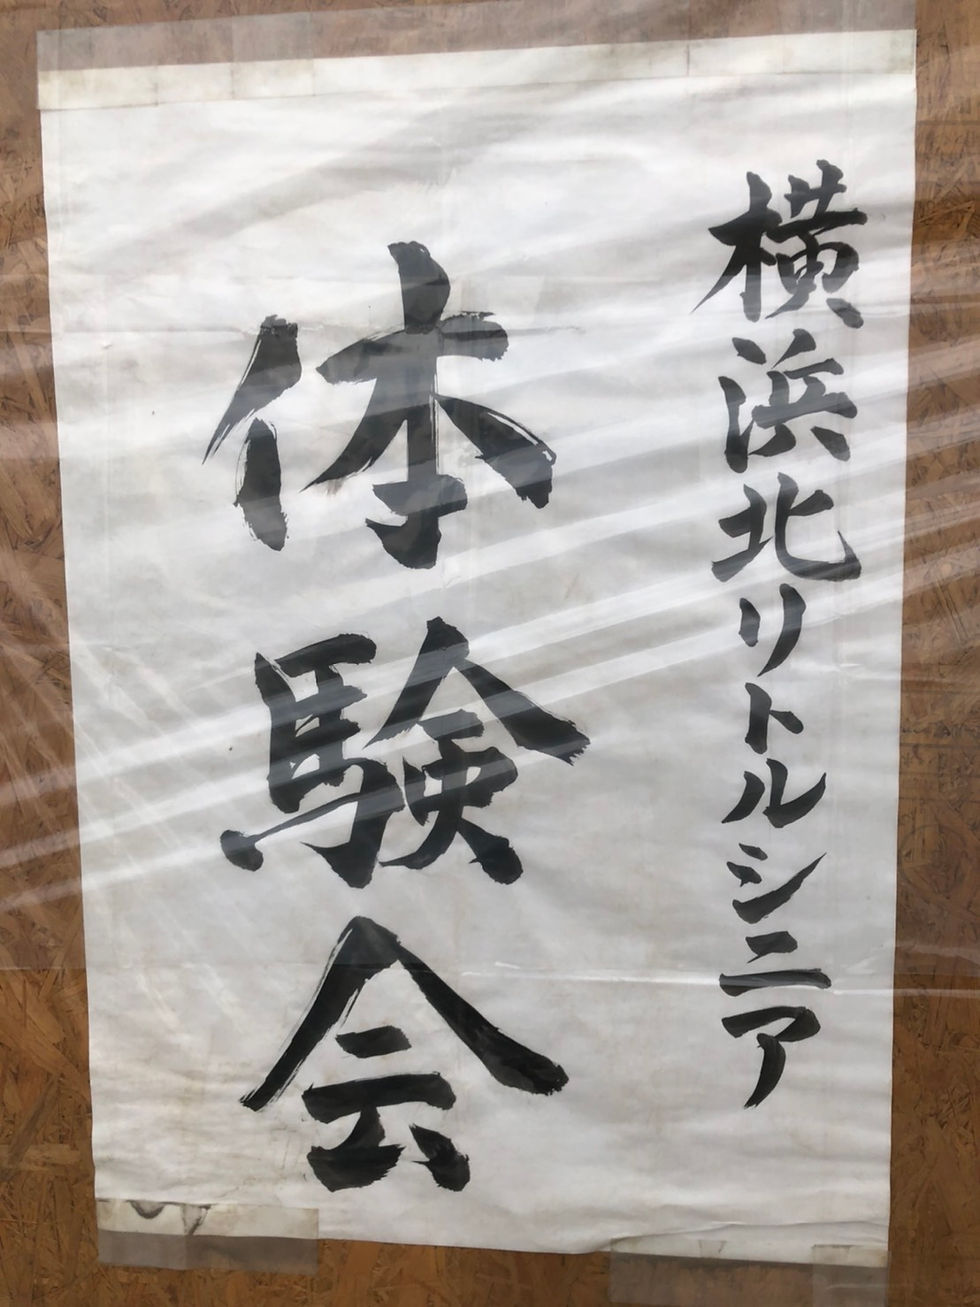 横浜北リトルシニア
体験会